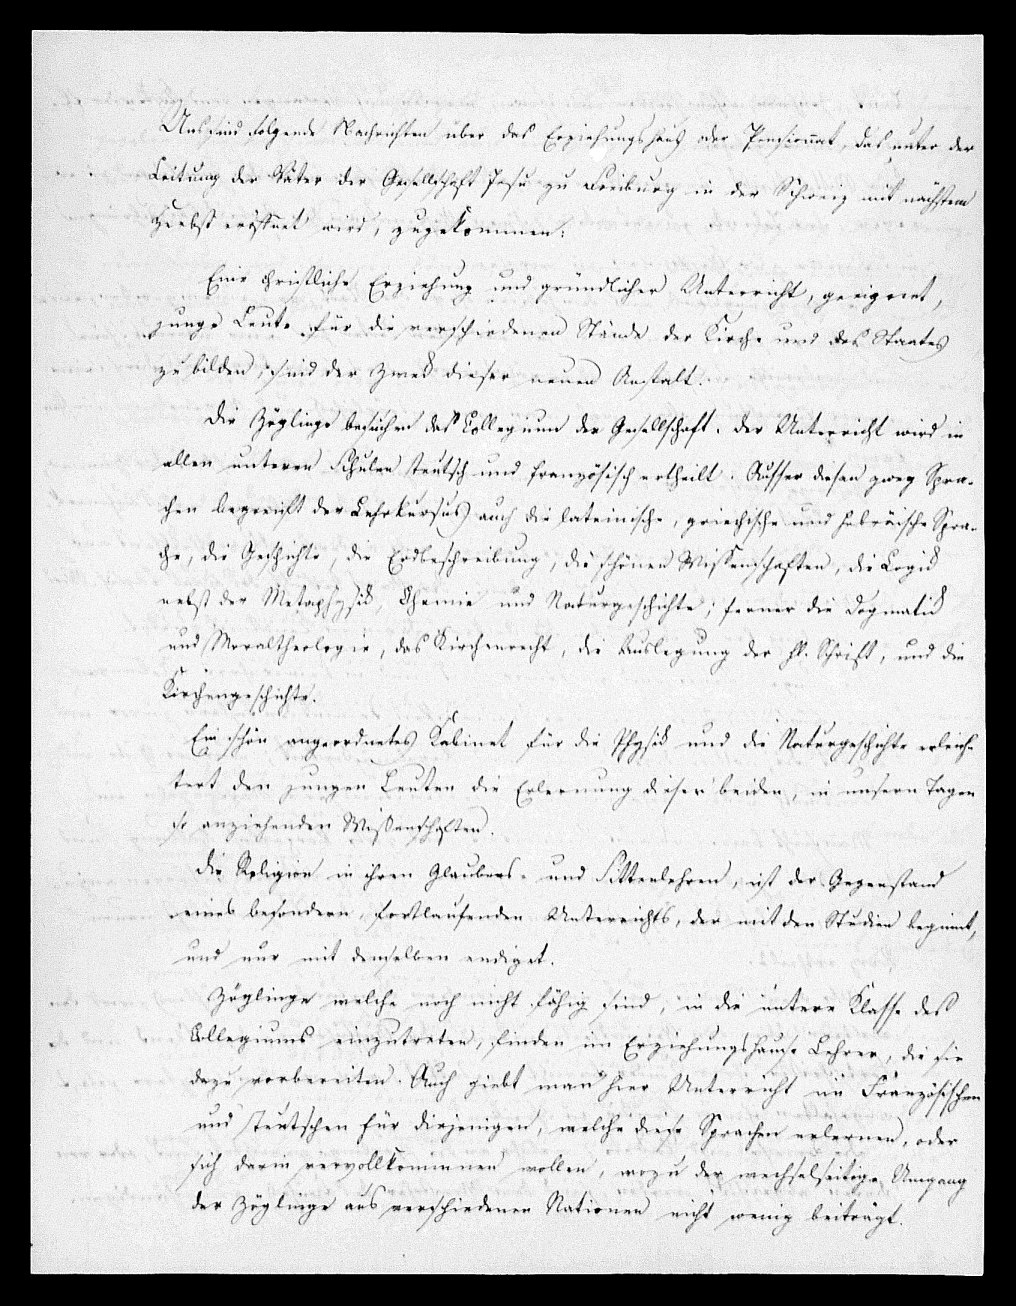 Uns sind folgende Nachrichten über das Erziehungshaus oder Pensionnat, das unter der
Leitung der Väter der Gesellschaft Jesu zu Freiburg in der Schweiz mit nächstem
Herbst eröffnet wird, zugekommen:
Eine christliche Erziehung und gründlicher Unterricht, geeignet,
junge Leute für die verschiedenen Stände der Kirche und des Staates
zu bilden, sind der Zweck dieser neuen Anstalt.
Die Zöglinge besuchen das Collegium der Gesellschaft. Der Unterricht wird in
allen unteren Schulen teutsch und französisch ertheilt. Ausser diesen zwey Spra-
chen begreift der Lehrkursus auch die lateinische, griechische und hebräische Spra-
che, die Geschichte, die Erdbeschreibung, die schönen Wissenschaften, die Logik
nebst der Metaphysik, Chemie und Naturgeschichte; ferner die Dogmatik
und Moraltheologie, das Kirchenrecht, die Auslegung der hl. Schrift, und die
Kirchengeschichte.
Ein schön angeordnetes Kabinet für die Physik und die Naturgeschichte erleich-
tert den jungen Leuten die Erlernung dieser beiden, in unsern Tagen
so anziehenden Wissenschaften.
Die Religion in ihren Glaubens- und Sittenlehren, ist der Gegenstand
eines besondern, fortlaufenden Unterrichts, der mit den Studien beginnt,
und nur mit denselben endiget.
Zöglinge welche noch nicht fähig sind, in die untere Klasse des
Collegiums einzutreten, finden im Erziehungshause Lehrer, die sie
dazu vorbereiten. Auch giebt man hier Unterricht im Französischen
und Teutschen für diejenigen, welche diese Sprachen erlernen, oder
sich darin vervollkommnen wollen, wozu der wechselseitige Umgang
der Zöglinge aus verschiedenen Nationen nicht wenig beiträgt.